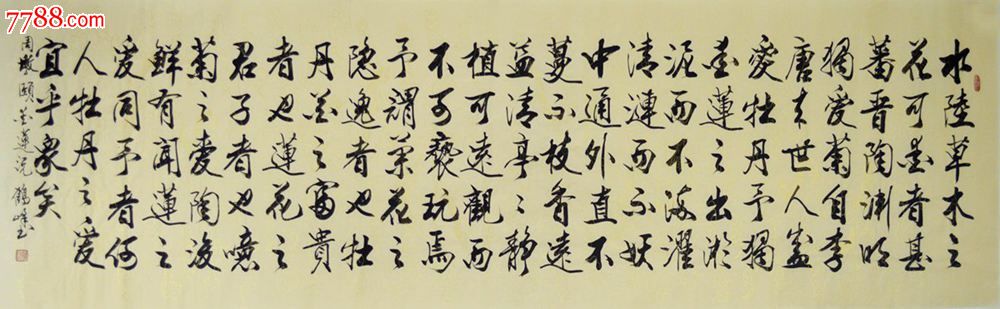 7788.com
水陸草木之
花可愛者甚
蕃晉陶渊明
獨愛菊自李
唐来世人盛
愛牡丹予獨
愛蓮之出淤
泥而不染濯
清漣而不妖
中通外直不
蔓不枝香遠
益清亭〻靜
植可遠觀而
不可褻玩焉
予謂菊花之
隐逸者也牡
丹花之富貴
者也蓮花之
君子者也噫
菊之愛陶後
鮮有聞蓮之
愛同予者何
人牡丹之愛
宜乎眾矣
周敦頤愛蓮说 鶴峰书